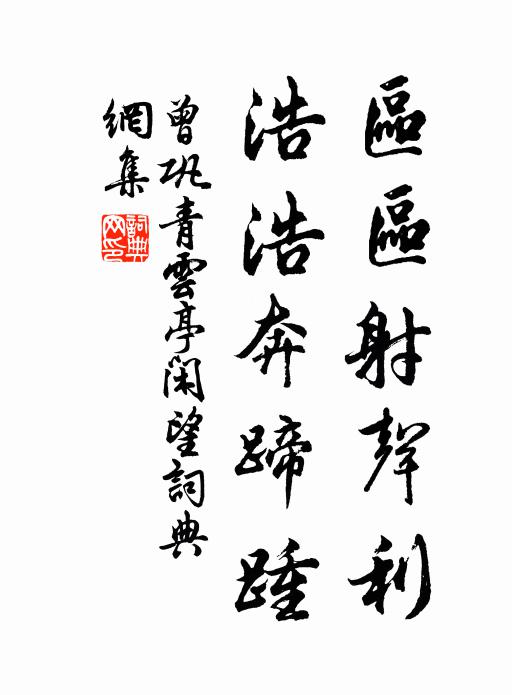 區區射聲利
浩浩奔蹄踵
曾巩青雲亭閑望詞典
網集
詞典
网印